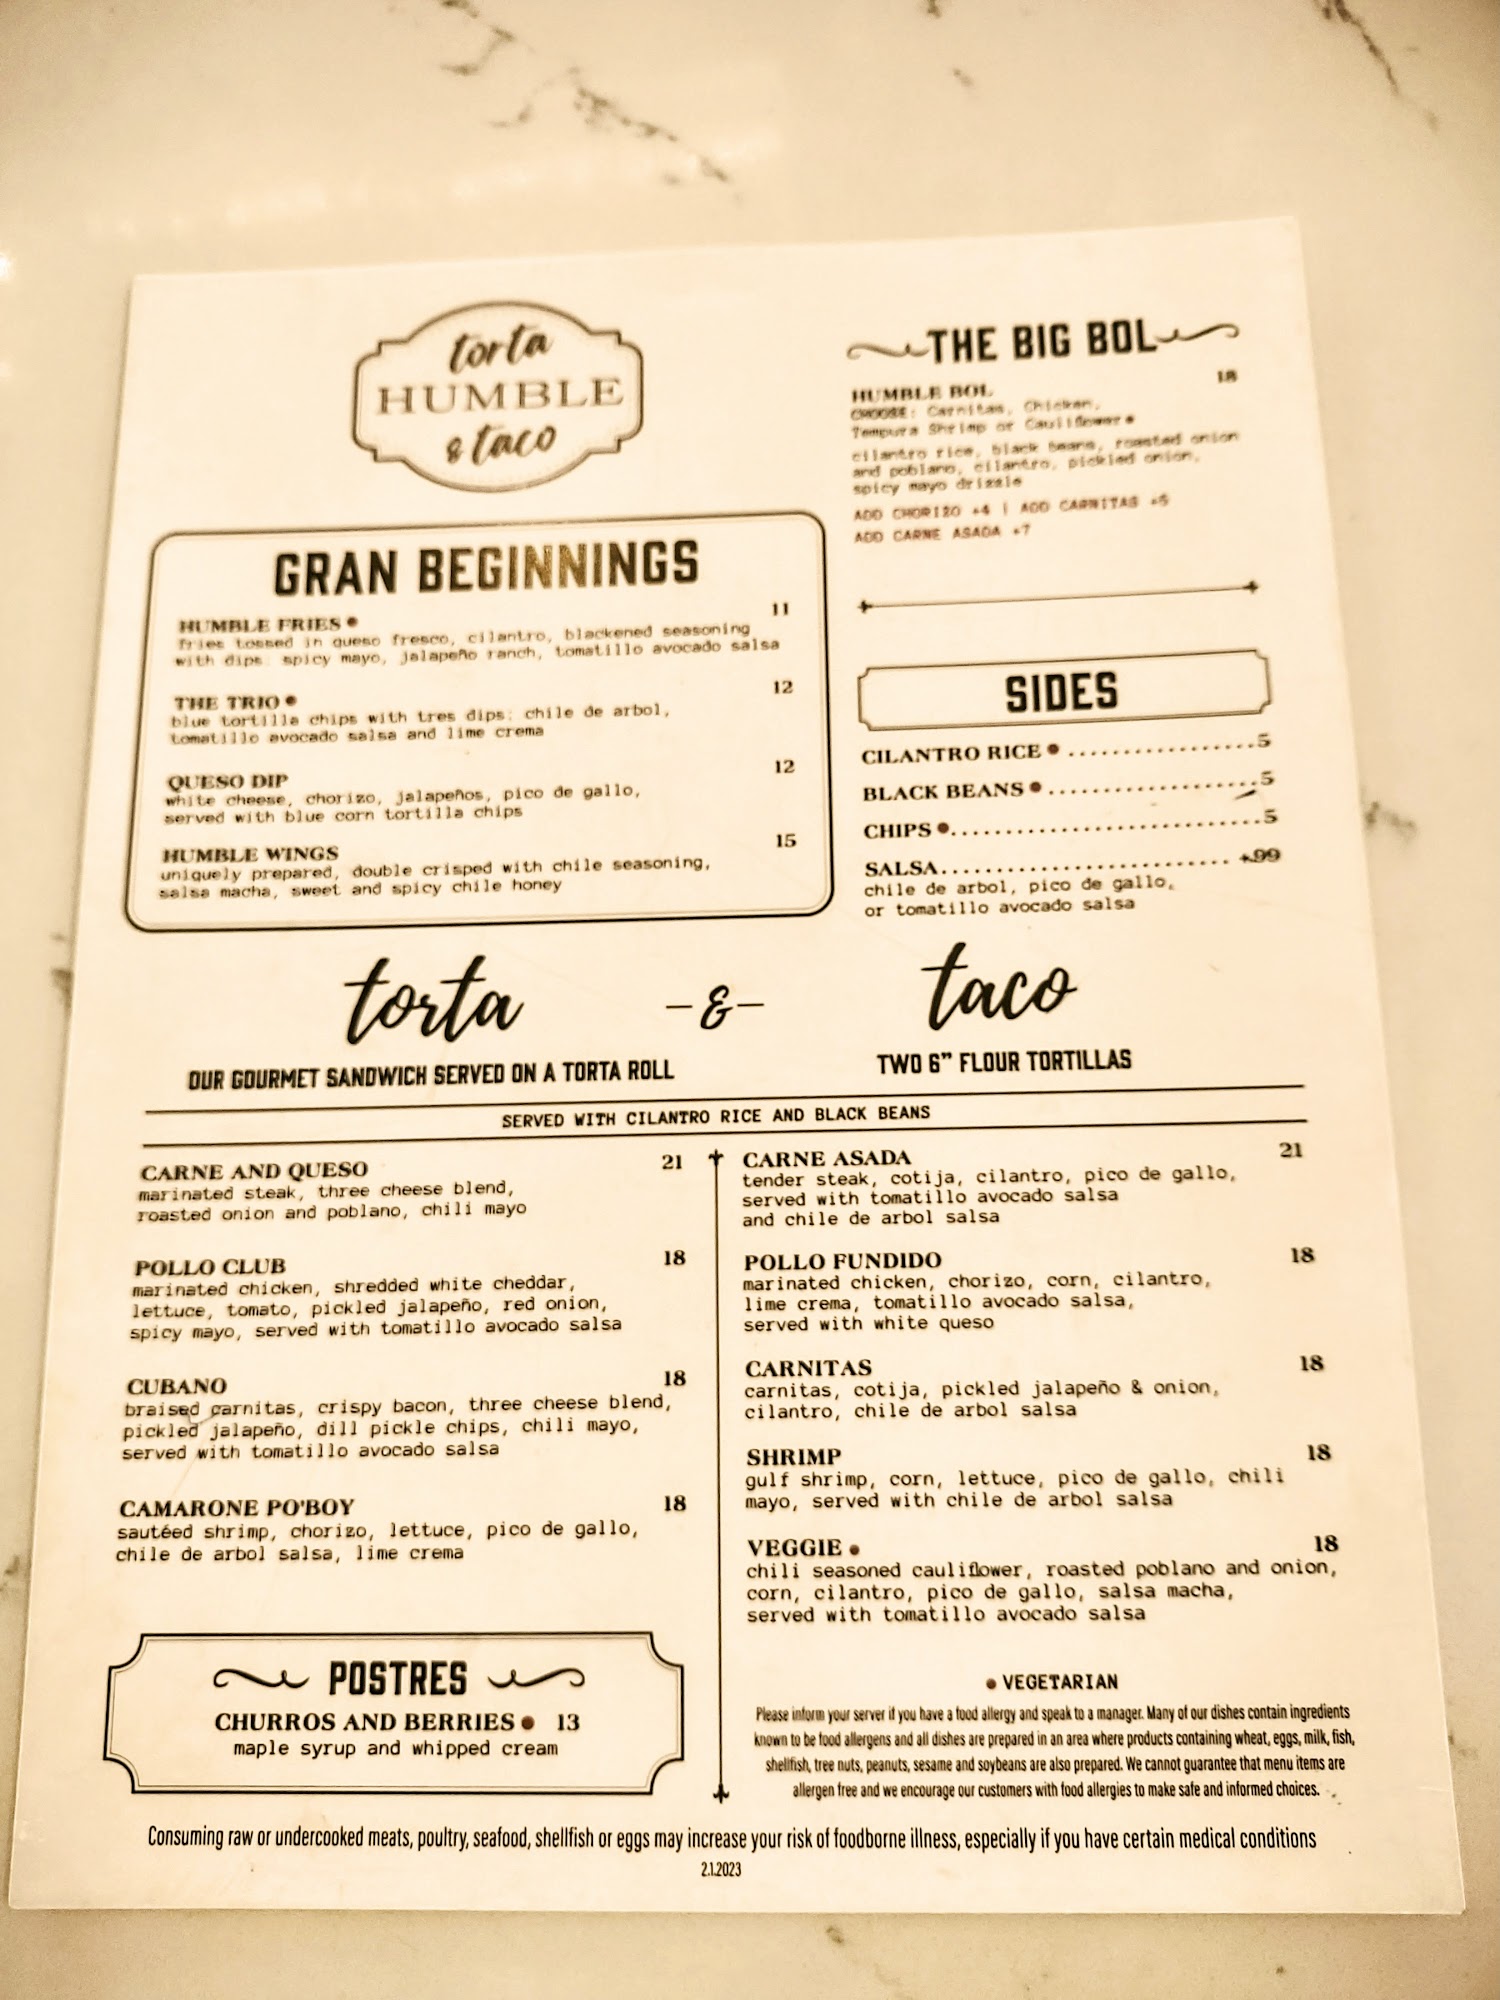 torta
HUMBLE
& taco
GRAN BEGINNINGS
HUMBLE FRIES • 11
fries tossed in queso fresco, cilantro, blackened seasoning
with dips: spicy mayo, jalapeño ranch, tomatillo avocado salsa
THE TRIO • 12
blue tortilla chips with tres dips: chile de arbol,
tomatillo avocado salsa and lime crema
QUESO DIP 12
white cheese, chorizo, jalapeños, pico de gallo,
served with blue corn tortilla chips
HUMBLE WINGS 15
uniquely prepared, double crisped with chile seasoning,
salsa macha, sweet and spicy chile honey
THE BIG BOL
HUMBLE BOL 18
CHOOSE: Carnitas, Chicken,
Tempura Shrimp or Cauliflower •
cilantro rice, black beans, roasted onion
and poblano, cilantro, pickled onion,
spicy mayo drizzle
ADD CHORIZO +4 | ADD CARNITAS +5
ADD CARNE ASADA +7
SIDES
CILANTRO RICE • .................5
BLACK BEANS • ...................5
CHIPS •..........................5
SALSA........................ +.99
chile de arbol, pico de gallo,
or tomatillo avocado salsa
torta -&- taco
OUR GOURMET SANDWICH SERVED ON A TORTA ROLL
TWO 6" FLOUR TORTILLAS
SERVED WITH CILANTRO RICE AND BLACK BEANS
CARNE AND QUESO 21
marinated steak, three cheese blend,
roasted onion and poblano, chili mayo
POLLO CLUB 18
marinated chicken, shredded white cheddar,
lettuce, tomato, pickled jalapeño, red onion,
spicy mayo, served with tomatillo avocado salsa
CUBANO 18
braised carnitas, crispy bacon, three cheese blend,
pickled jalapeño, dill pickle chips, chili mayo,
served with tomatillo avocado salsa
CAMARONE PO'BOY 18
sautéed shrimp, chorizo, lettuce, pico de gallo,
chile de arbol salsa, lime crema
POSTRES
CHURROS AND BERRIES • 13
maple syrup and whipped cream
CARNE ASADA 21
tender steak, cotija, cilantro, pico de gallo,
served with tomatillo avocado salsa
and chile de arbol salsa
POLLO FUNDIDO 18
marinated chicken, chorizo, corn, cilantro,
lime crema, tomatillo avocado salsa,
served with white queso
CARNITAS 18
carnitas, cotija, pickled jalapeño & onion,
cilantro, chile de arbol salsa
SHRIMP 18
gulf shrimp, corn, lettuce, pico de gallo, chili
mayo, served with chile de arbol salsa
VEGGIE • 18
chili seasoned cauliflower, roasted poblano and onion,
corn, cilantro, pico de gallo, salsa macha,
served with tomatillo avocado salsa
• VEGETARIAN
Please inform your server if you have a food allergy and speak to a manager. Many of our dishes contain ingredients
known to be food allergens and all dishes are prepared in an area where products containing wheat, eggs, milk, fish,
shellfish, tree nuts, peanuts, sesame and soybeans are also prepared. We cannot guarantee that menu items are
allergen free and we encourage our customers with food allergies to make safe and informed choices.
Consuming raw or undercooked meats, poultry, seafood, shellfish or eggs may increase your risk of foodborne illness, especially if you have certain medical conditions
2.1.2023